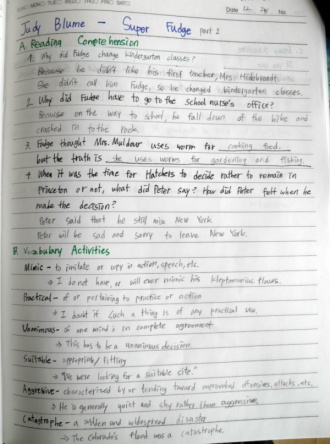 Date
No.
Judy Blume - Super Fudge part 2
A. Reading Comprehension
1. Why did Fudge change kindergarten classes?
Because he didn't like his first teacher, Mrs. Hildebrandt.
She didn't call him Fudge, so he changed kindergarten classes.
2. Why did Fudge have to go to the school nurse's office?
Because on the way to school, he fall down of the bike and
crashed in to the rock.
3. Fudge thought Mrs. Muldour uses worm for cooking food.
but the truth is she uses worms for gardening and fishing.
4. When it was the time for Hatchers to decide rather to remain in
Princeton or not, what did Peter say? How did Peter felt when he
made the decision?
Peter said that he still miss New York.
Peter will be sad and sorry to leave New York.
B. Vocabulary Activities
Mimic - to imitate or copy in action, speech, etc.
→ I do not have, or will ever mimic his kleptomaniac flaws.
Practical - of or pertaining to practice or action
→ I doubt if such a thing is of any practical use.
Unanimous - of one mind in complete agreement
→ This has to be a unanimous decision.
Suitable - appropriate/fitting
→ "We were looking for a suitable site."
Aggressive - characterized by or tending toward unprovoked offensives, attacks, etc.
→ He is generally quiet and shy rather than aggressive.
Catastrophe - a sudden and widespread disaster
→ The Colorado's flood was a catastrophe.